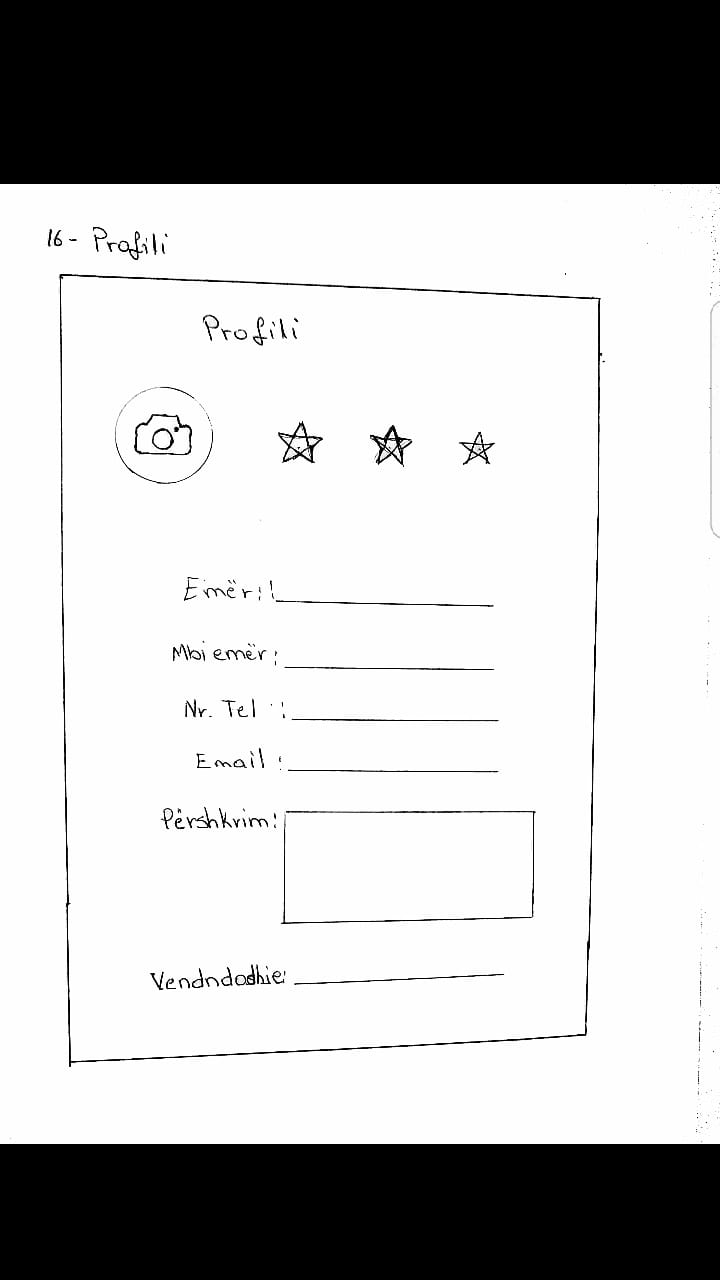 16- Profili
Profili
Emër:
Mbiemër:
Nr. Tel :
Email :
Përshkrim:
Vendndodhie: